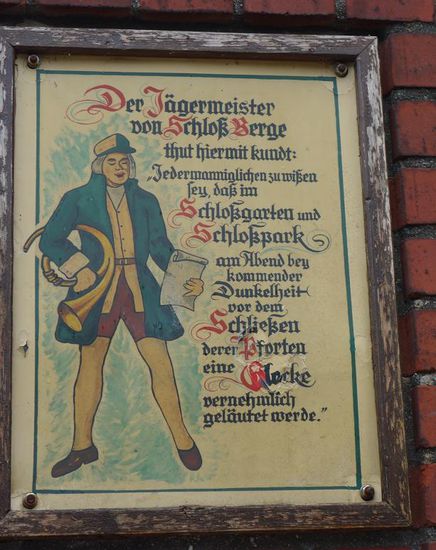 Der Jägermeister
von Schloß Berge
thut hiermit kundt:
„Jedermanniglichen zu wißen
sey, daß im
Schloßgarten und
Schloßpark
am Abend bey
kommender
Dunkelheit
vor dem
Schließen
derer Pforten
eine Glocke
vernehmlich
geläutet werde."